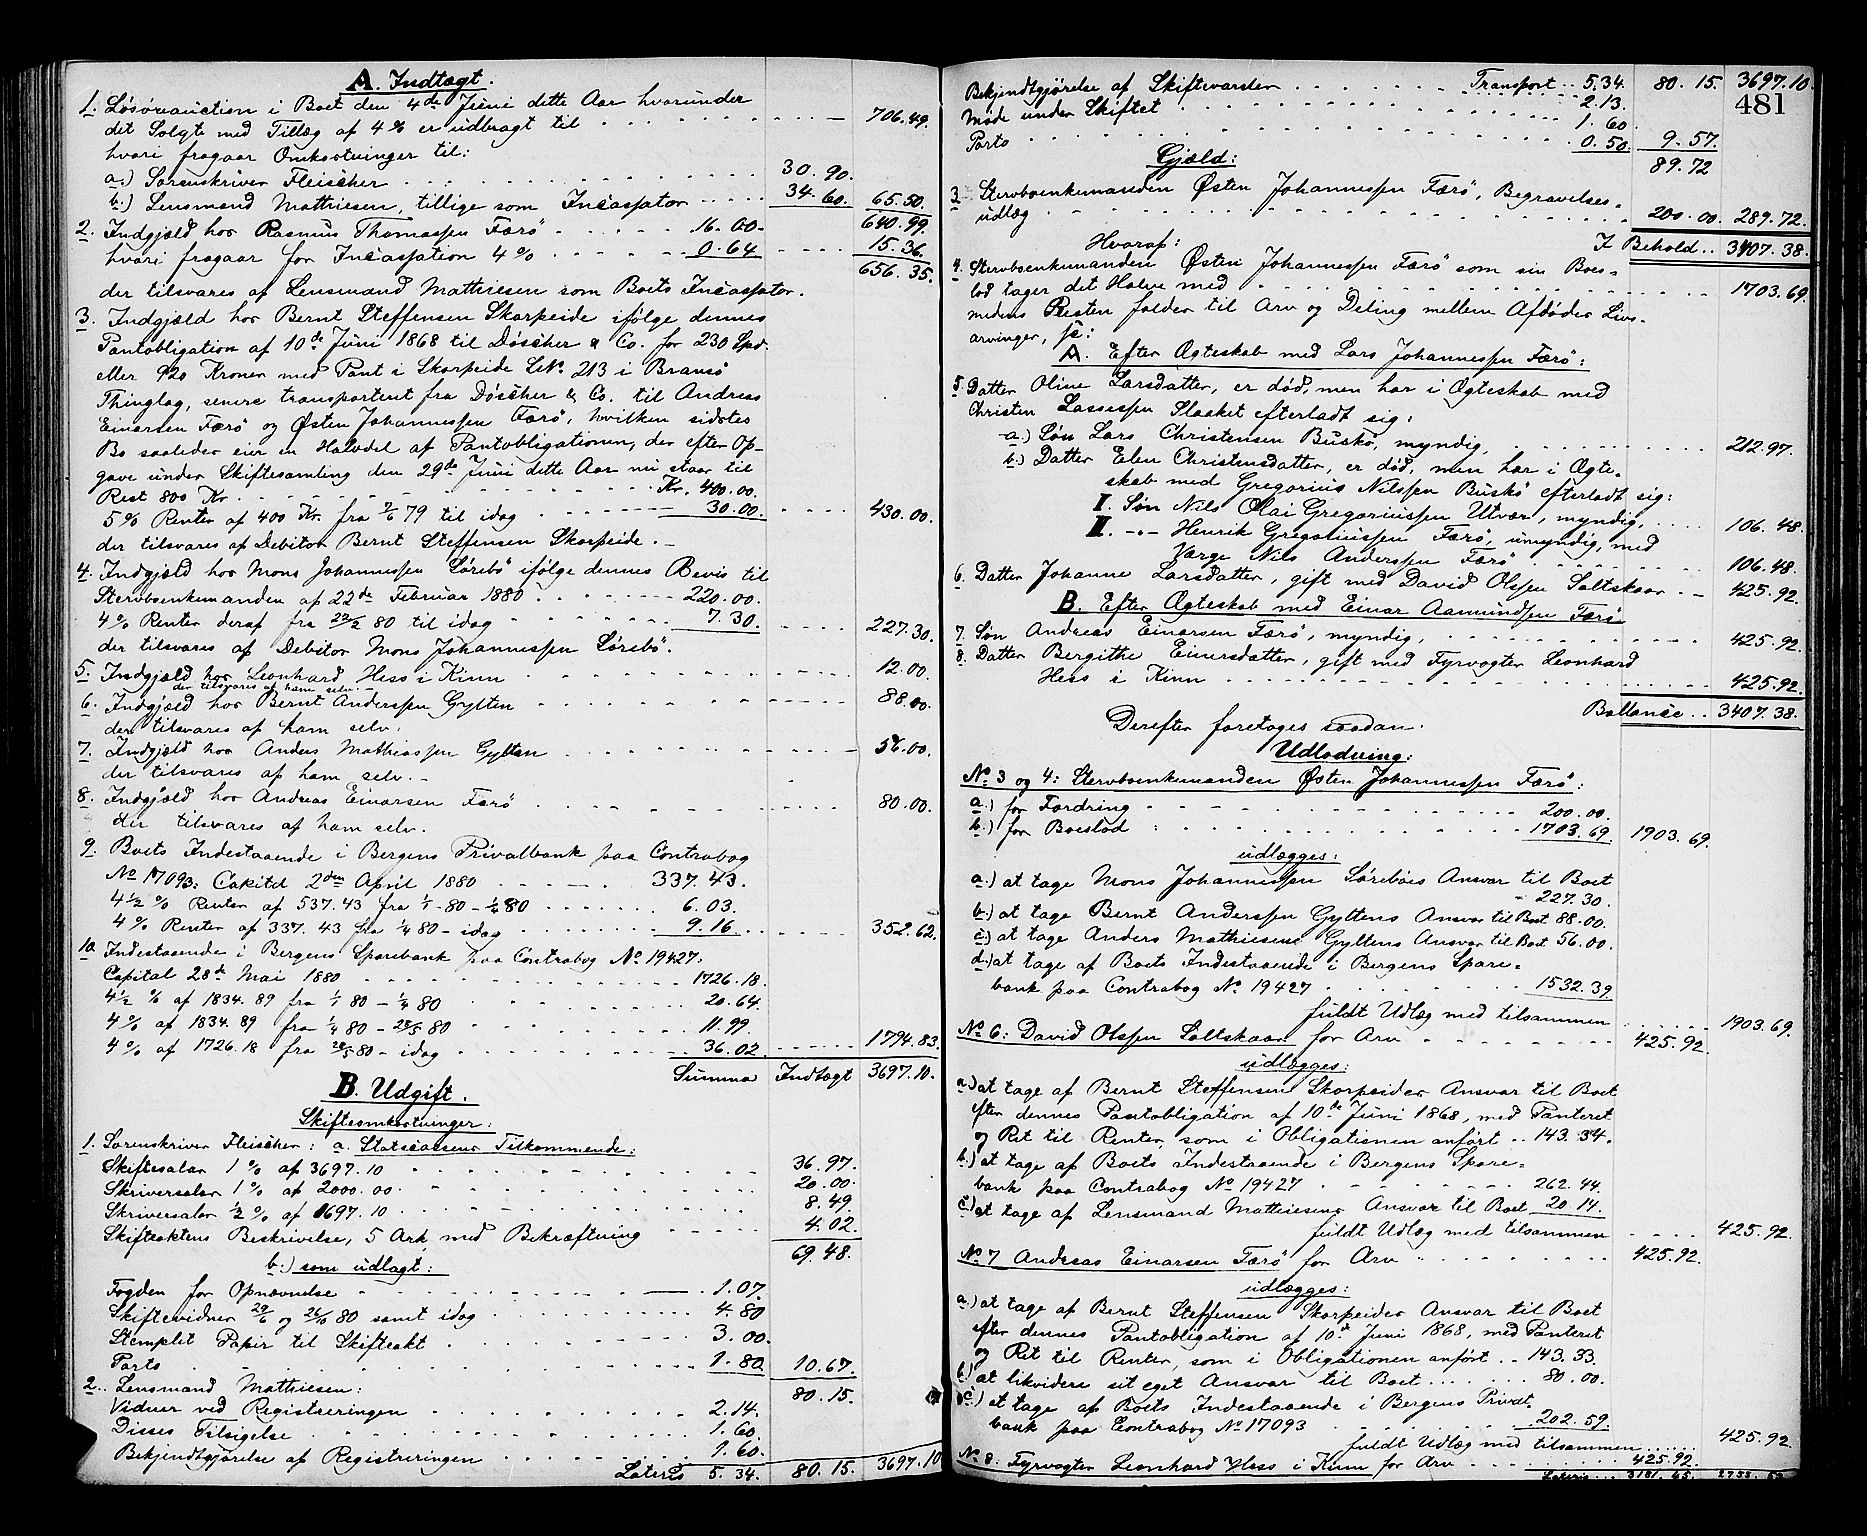 A. Indtægt.
1. Løsøreauction i Boet den 4de Juni dette Aar hvorunder
det Solgt med Tillæg af 4% er udbragt til 706.49.
hvori fragaar Omkostninger til:
a.) Sorenskriver Fleischer 30.90.
b.) Lensmand Mathiesen, tillige som Incassator 34.60. 65.50.
640.99.
2. Indgjæld hos Rasmus Thomassen Færø 16.00.
hvori fragaar for Incassation 4% 0.64 15.36.
656.35.
der tilsvares af Lensmand Mathiesen som Boets Incassator.
3. Indgjæld hos Bernt Steffensen Skorpeide ifølge dennes
Pantobligation af 10de Juni 1868 til Døscher & Co. for 230 Spd.
eller 920 Kroner med Pant i Skorpeide LNo. 213 i Bransø
Thinglag, senere transporteret fra Døscher & Co. til Andreas
Einarsen Færø og Østen Johannessen Færø, hvilken sidstes
Bo saaledes eier en Halvdel af Pantobligationen, der efter Op-
gave under Skiftesamling den 29de Juni dette Aar nu staar til
Rest 800 Kr. Kr. 400.00.
5% Renter af 400 Kr. fra 2/6 79 til idag 30.00. 430.00.
der tilsvares af Debitor Bernt Steffensen Skorpeide.
4. Indgjæld hos Mons Johannessen Sørebø ifølge dennes Bevis til
Stervboenkemanden af 22de Februar 1880 220.00.
4% Renter deraf fra 22/2 80 til idag 7.30. 227.30.
der tilsvares af Debitor Mons Johannessen Sørebø.
5. Indgjæld hos Leonhard Hess i Kinn 12.00.
der tilsvares af ham selv.
6. Indgjæld hos Bernt Anderssen Gylten 88.00.
der tilsvares af ham selv.
7. Indgjæld hos Anders Mathiassen Gylten 56.00.
der tilsvares af ham selv.
8. Indgjæld hos Andreas Einarsen Færø 80.00.
der tilsvares af ham selv.
9. Boets Indestaaende i Bergens Privatbank paa Contrabog
No 17093: Capital 2den April 1880 337.43.
4 1/2 % Renter af 537.43 fra 1/1 - 80 - 1/4 80 6.03.
4% Renter af 337.43 fra 1/4 80 - idag 9.16 352.62.
10. Indestaaende i Bergens Sparebank paa Contrabog No 19427.
Capital 28de Mai 1880 1726.18.
4 1/2 % af 1834.89 fra 1/1 80 - 1/4 80 20.64.
4% af 1834.89 fra 1/4 80 - 28/5 80 11.99.
4% af 1726.18 fra 28/5 80 - idag 36.02 1794.83.
Summa Indtægt 3697.10.
B. Udgift.
Skifteomkostninger:
1. Sorenskriver Fleischer: a. Statscassens Tilkommende:
Skiftesalær 1% af 3697.10 36.97.
Skriversalær 1% af 2000.00 20.00.
Skriversalær 1/2 % af 1697.10 8.49.
Skifteaktens Beskrivelse, 5 Ark med Bekræftning 4.02.
69.48.
b.) som udlagt:
Fogden for Opnævnelse 1.07.
Skiftevidner 29/6 og 26/10 80 samt idag 4.80
Stemplet Papir til Skifteakt 3.00.
Porto 1.80 10.67.
2. Lensmand Mathiesen: 80.15.
Vidner ved Registreringen 2.14.
Disses Tilsigelse 1.60.
Bekjendtgjørelse af Registreringen 1.60.
Lateris 5.34. 80.15. 3697.10
Transport 5.34. 80.15. 3697.10.
481
Bekjendtgjørelse af Skiftevarsler 2.13.
Møde under Skiftet 1.60.
Porto 0.50. 9.57.
Gjæld: 89.72
3. Stervboenkemanden Østen Johannessen Færø, Begravelses-
udlæg 200.00. 289.72.
I Behold 3407.38.
Hvoraf:
4. Stervboenkemanden Østen Johannessen Færø som sin Boes-
lod tager det Halve med 1703.69.
medens Resten falder til Arv og Deling mellem Afdødes Livs-
arvinger,
A. Efter Ægteskab med Lars Johannessen Færø:
5. Datter Oline Larsdatter, er død, men har i Ægteskab med
Christen Lassessen Slaaket efterladt sig:
a.) Søn Lars Christensen Buskø, myndig, 212.97.
b.) Datter Elen Christensdatter, er død, men har i Ægte-
skab med Gregorius Nilssen Buskø efterladt sig:
I. Søn Nils Olai Gregoriussen Utvær, myndig, 106.48.
II. -"- Henrik Gregoriussen Færø, umyndig, med
Værge Nils Anderssen Færø 106.48.
6. Datter Johanne Larsdatter, gift med David Olssen Saltskaar 425.92.
B. Efter Ægteskab med Einar Aamundssen Færø
7. Søn Andreas Einarsen Færø, myndig, 425.92.
8. Datter Bergithe Einersdatter, gift med Fyrvogter Leonhard
Hess i Kinn 425.92.
Ballance 3407.38.
Derefter foretages saadan
Udlodning:
No. 3 og 4: Stervboenkemanden Østen Johannessen Færø:
a.) for Fordring 200.00.
b.) for Boeslod 1703.69 1903.69.
udlægges:
a.) at tage Mons Johannessen Sørebøes Ansvar til Boet
227.30.
b.) at tage Bernt Anderssen Gyltens Ansvar til Boet 88.00.
c.) at tage Anders Mathiesens Gyltens Ansvar til Boet 56.00.
d.) at tage af Boets Indestaaende i Bergens Spare-
bank paa Contrabog No. 19427 1532.39
fuldt Udlæg med tilsammen 1903.69.
No. 6: David Olssen Saltskaar for Arv 425.92.
udlægges:
a.) at tage af Bernt Steffensen Skorpeides Ansvar til Boet
efter dennes Pantobligation af 10de Juni 1868, med Panteret
og Ret til Renter, som i Obligationen anført 143.34.
b.) at tage af Boets Indestaaende i Bergens Spare-
bank paa Contrabog No 19427 262.44.
c.) at tage af Lensmand Mathiesens Ansvar til Boet 20.14.
fuldt Udlæg med tilsammen 425.92.
No. 7 Andreas Einarsen Færø for Arv 425.92.
udlægges:
a.) at tage af Bernt Steffensen Skorpeides Ansvar til Boet
efter dennes Pantobligation af 10de Juni 1868, med Panteret
og Ret til Renter, som i Obligationen anført 143.33.
b.) at likvidere sit eget Ansvar til Boet 80.00.
c.) at tage af Boets Indestaaende i Bergens Privat-
bank paa Contrabog No 17093 202.59.
fuldt Udlæg med tilsammen 425.92.
No. 8. Fyrvogter Leonhard Hess i Kinn for Arv 425.92.
Lateris 3181.45.